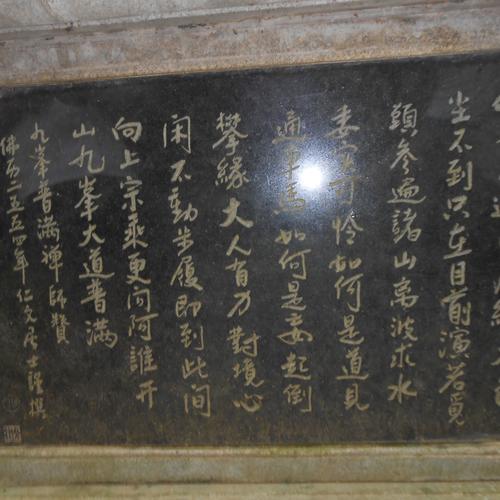 坐不到只在目前演若覓
頭參遍諸山高波求水
委實可憐如何是道見
通車馬如何是妄起倒
攀緣大人有力對境心
闲不動步履即到此间
向上宗乘更问阿誰开
山九峯大道普满
九峯普满禅師贊
佛历二五五四年仁文居士謹撰